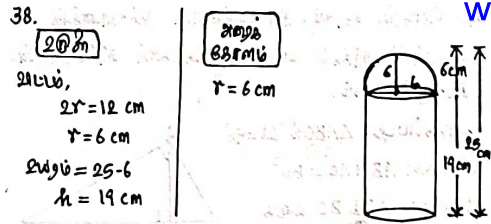 38.
உருளை
வட்டம்,
2r = 12 cm
r = 6 cm
உயரம் = 25-6
h = 19 cm
அரைக்
கோளம்
r = 6 cm
W
6
6
6cm
19cm
25
cm